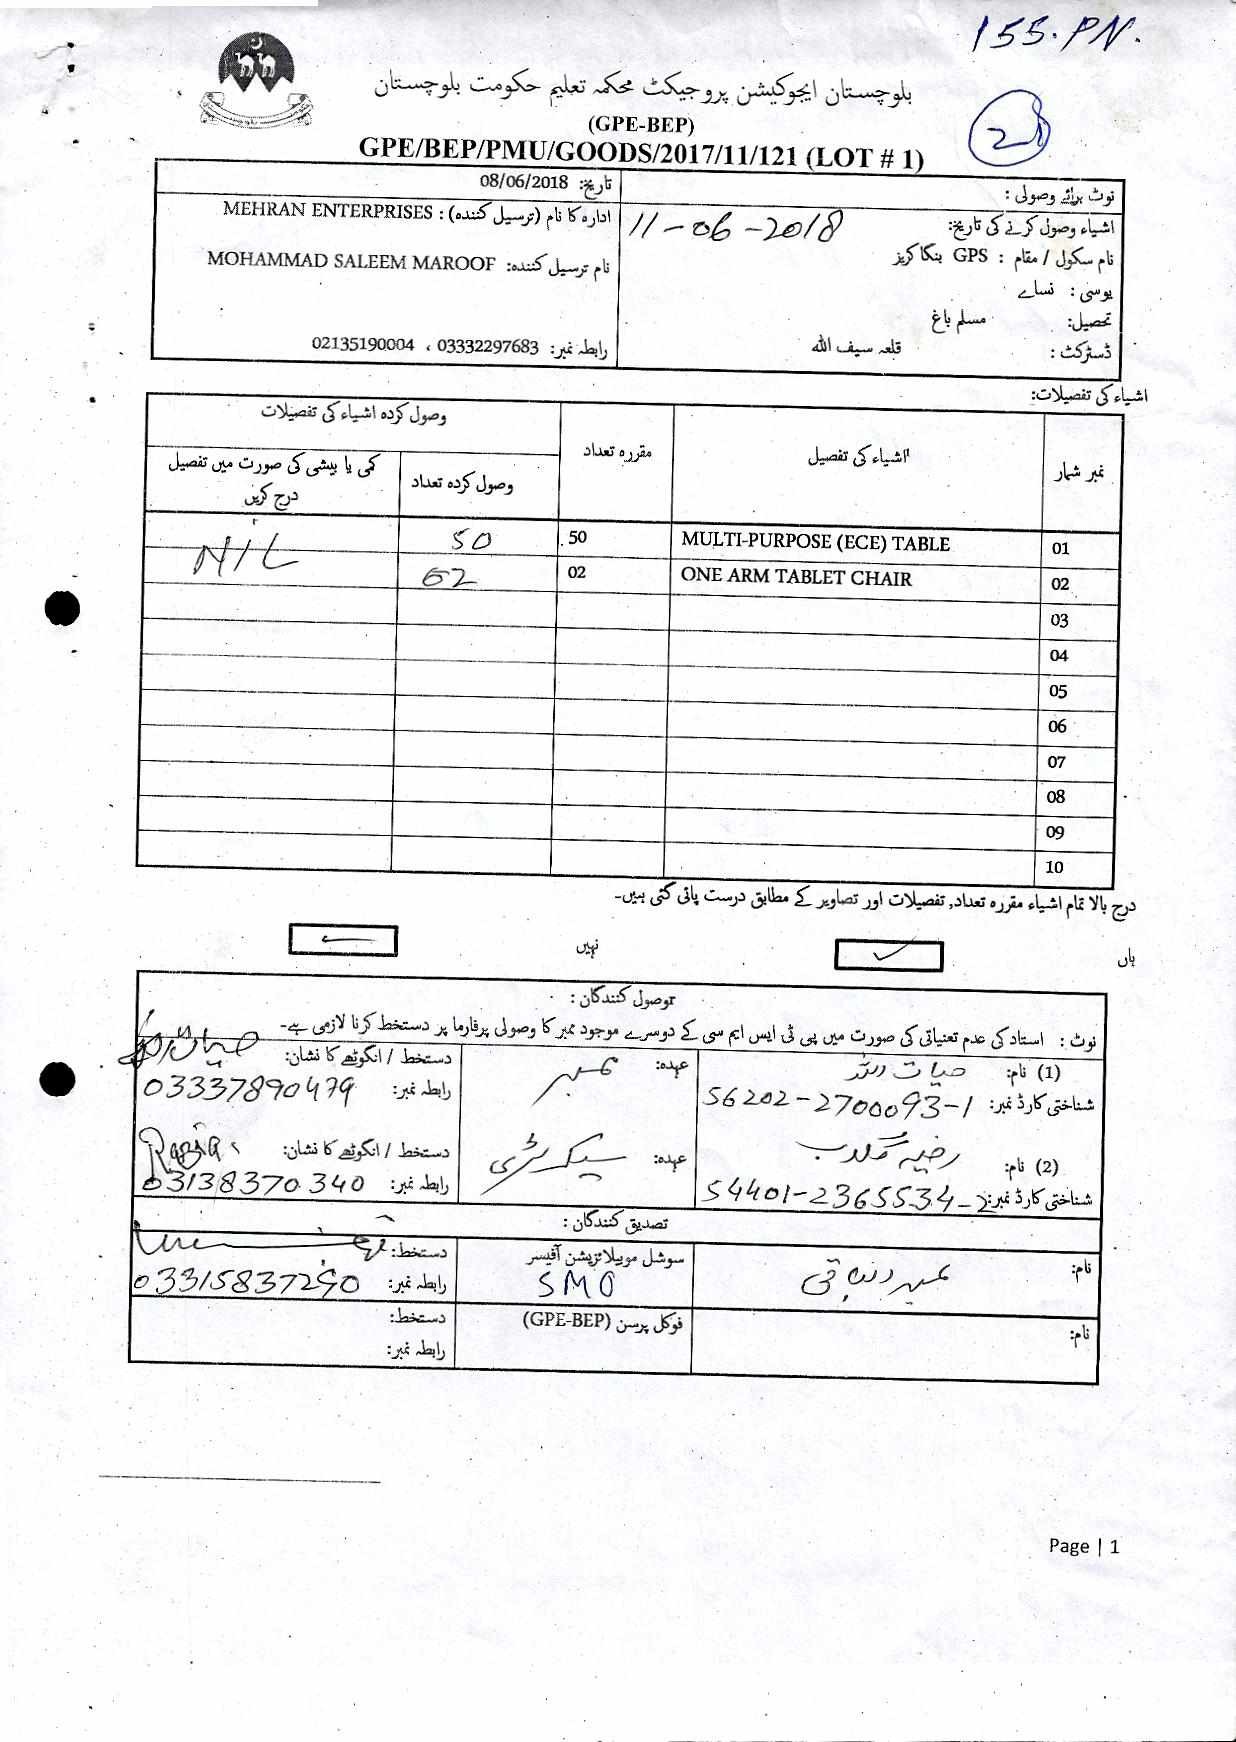 155.PN.
بلوچستان ایجوکیشن پروجیکٹ محکمہ تعلیم حکومت بلوچستان
(GPE-BEP)
28
GPE/BEP/PMU/GOODS/2017/11/121 (LOT # 1)
نوٹ برائے وصولی :
اشیاء وصول کرنے کی تاریخ: 11-06-2018
نام سکول / مقام : GPS بنگا کریز
یوسی : نسائے
تحصیل: مسلم باغ
ڈسٹرکٹ : قلعہ سیف اللہ
تاریخ: 08/06/2018
ادارہ کا نام (ترسیل کنندہ) : MEHRAN ENTERPRISES
نام ترسیل کنندہ: MOHAMMAD SALEEM MAROOF
رابطہ نمبر: 03332297683 ، 02135190004
اشیاء کی تفصیلات:
نمبر شمار
اشیاء کی تفصیل
مقررہ تعداد
وصول کردہ اشیاء کی تفصیلات
وصول کردہ تعداد
کمی یا بیشی کی صورت میں تفصیل درج کریں
01 MULTI-PURPOSE (ECE) TABLE 50 50 NIL
02 ONE ARM TABLET CHAIR 02 02
03
04
05
06
07
08
09
10
درج بالا تمام اشیاء مقررہ تعداد, تفصیلات اور تصاویر کے مطابق درست پائی گئی ہیں۔
ہاں ✓ نہیں
وصول کنندگان :
نوٹ : استاد کی عدم تعنیاتی کی صورت میں پی ٹی ایس ایم سی کے دوسرے موجود ممبر کا وصولی پرفارما پر دستخط کرنا لازمی ہے۔
(1) نام: حیات اللہ عہدہ: ممبر دستخط / انگوٹھے کا نشان:
شناختی کارڈ نمبر: 56202-2700093-1 رابطہ نمبر: 03337890479
(2) نام: رضیہ گلاب عہدہ: سیکرٹری دستخط / انگوٹھے کا نشان: Razia
شناختی کارڈ نمبر: 54401-2365534-2 رابطہ نمبر: 03138370340
تصدیق کنندگان :
نام: سوشل موبیلائزیشن آفیسر دستخط:
SMO رابطہ نمبر: 03315837290
نام: فوکل پرسن (GPE-BEP) دستخط:
رابطہ نمبر:
Page | 1